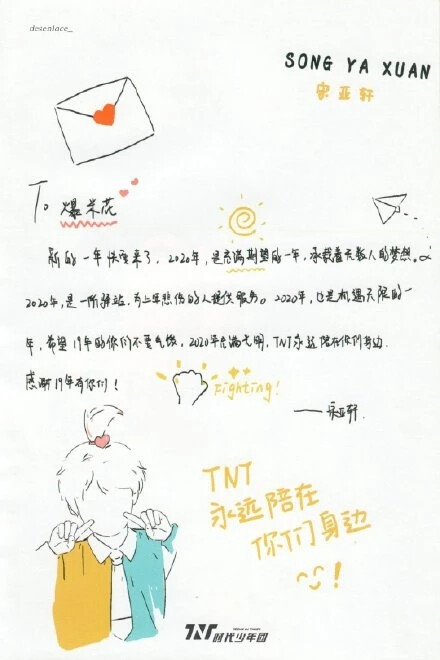 desenlace_
SONG YA XUAN
宋亚轩
To 爆米花
新的一年快要来了，2020年，是充满期望的一年，承载着无数人的梦想。
2020年，是一所驿站，为上年悲伤的人提供服务。2020年，也是机遇无限的一
年，希望19年的你们不要气馁，2020年充满光明，TNT永远陪在你们身边．
感谢19年有你们！
Fighting!
——宋亚轩．
TNT
永远陪在
你们身边
!
TNT时代少年团